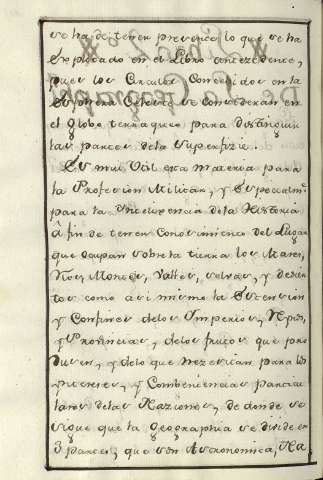 se ha de tener presente lo que se ha
Explicado en el Libro antezedente,
pues los Circulos Concedidos en la
Esphera Celeste se Consideran en
el globo terraqueo para distinguir
las partes de la Superfizie.
Es mui Util esta materia para
la Profesion Militar, y Especialmte
para la Ynteligencia de la Historia
â fin de tener Conocimiento del Lugar
que ocupan sobre la tierra los Mares,
Rios, Montes, Valles, selvas, y desier
tos como asi mismo la Extension
y Confines de los Imperios, Rnos,
y Provincias, y de los frutos que pro
ducen, y de lo que nezesitan para los
yntereses, y Combeniencias particu
lares de las Naziones, de donde se
sigue que la geographia se divide en
3 partes, que son Astronomica, Na